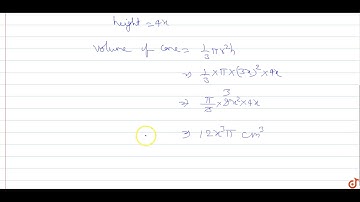 height = 4x
Volume of cone = 1/3 πr²h
⇒ 1/3 × π × (3x)² × 4x
⇒ π/3 × 9x² × 4x
3
⇒ 12x³π cm³